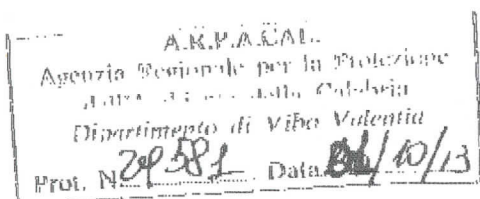 A.R.P.A.CAL.
Agenzia Regionale per la Protezione
della Calabria
Dipartimento di Vibo Valentia
Prot. N. 29581 Data /10/13